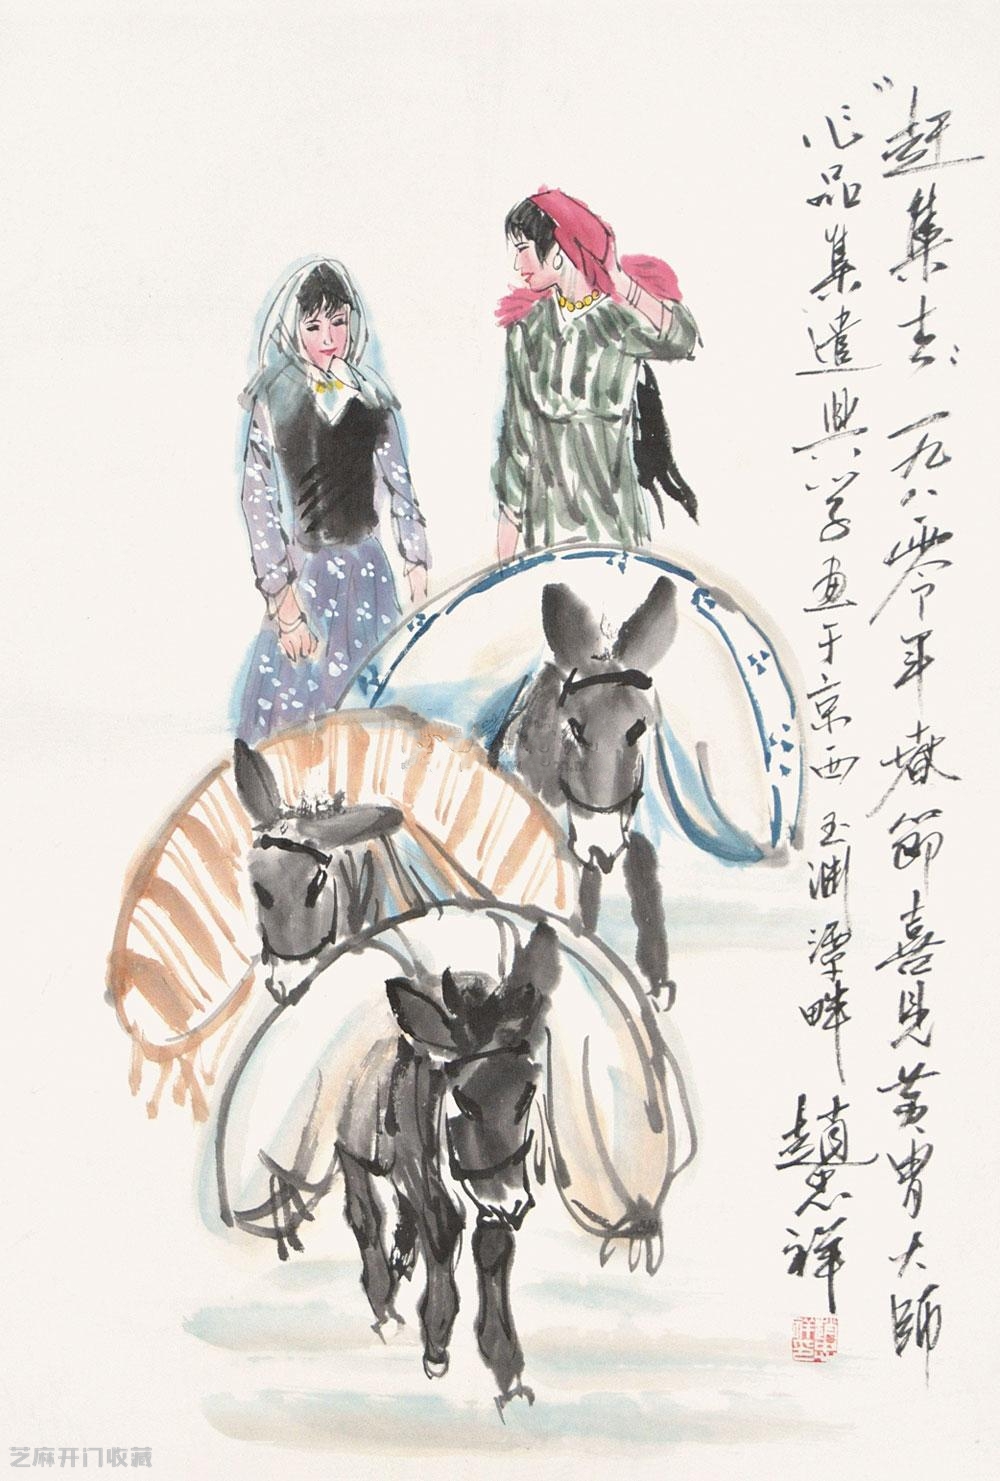 “赶集去”：一九八零年春节喜见黄胄大师
作品集遣兴学画于京西玉渊潭畔
趙忠祥
芝麻开门收藏